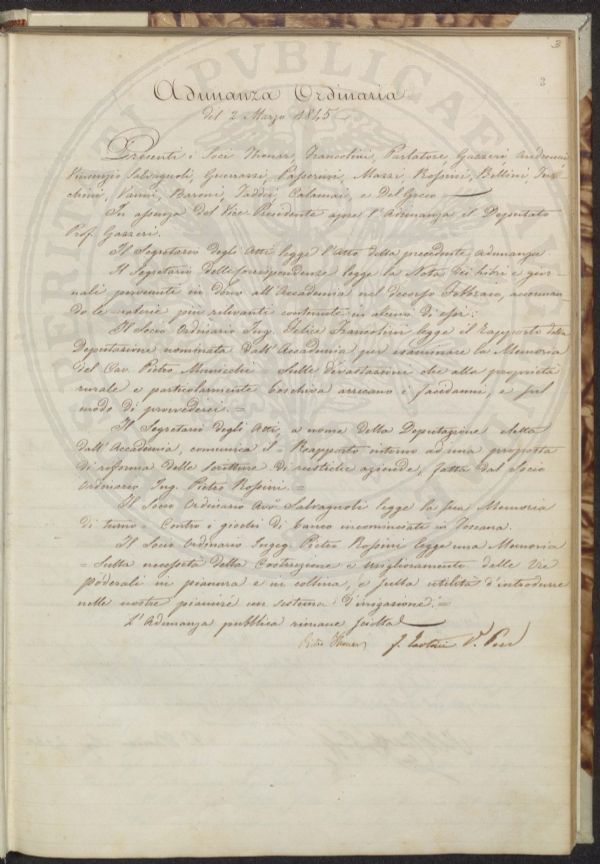 3
3
Adunanza Ordinaria
del 2 Marzo 1845
Presenti i Soci Thouar, Francolini, Parlatore, Gazzeri, Andreucci
Vincenzio Salvagnoli, Guerrazzi, Passerini, Mazzi, Rossini, Bellini, Tar-
chini, Vanni, Baroni, Taddei, Calamai, e Del Greco
In assenza del Vice-Presidente apre l'Adunanza il Deputato
Prof. Gazzeri.
Il Segretario degli Atti legge l'atto della precedente adunanza.
Il Segretario delle Corrispondenze legge la Nota dei libri e gior-
nali pervenuti in dono all'Accademia nel decorso Febbraio, accennan-
do le materie più rilevanti contenute in alcuno di essi:
Il Socio Ordinario Ing. Felice Francolini legge il Rapporto della
Deputazione nominata dall'Accademia per esaminare la Memoria
del Cav. Pietro Municchi = Sulle devastazioni che alla proprietà
rurale e particolarmente boschiva arrecano i facidanni, e sul
modo di provvederci. =
Il Segretario degli Atti, a nome della Deputazione eletta
dall'Accademia, comunica il = Rapporto intorno ad una proposta
di riforma delle scritture di rustiche aziende, fatta dal Socio
Ordinario Ing. Pietro Rossini. =
Il Socio Ordinario Avv. Salvagnoli legge la sua Memoria
di turno = Contro i giochi di banco incominciati in Toscana.
Il Socio Ordinario Ingeg. Pietro Rossini legge una Memoria
= Sulla necessità della Costruzione e miglioramento delle Vie
poderali in pianura e in collina, e sulla utilità d'introdurre
nelle nostre pianure un sistema d'irrigazione. =
L'Adunanza pubblica rimane sciolta
Pietro Thouar